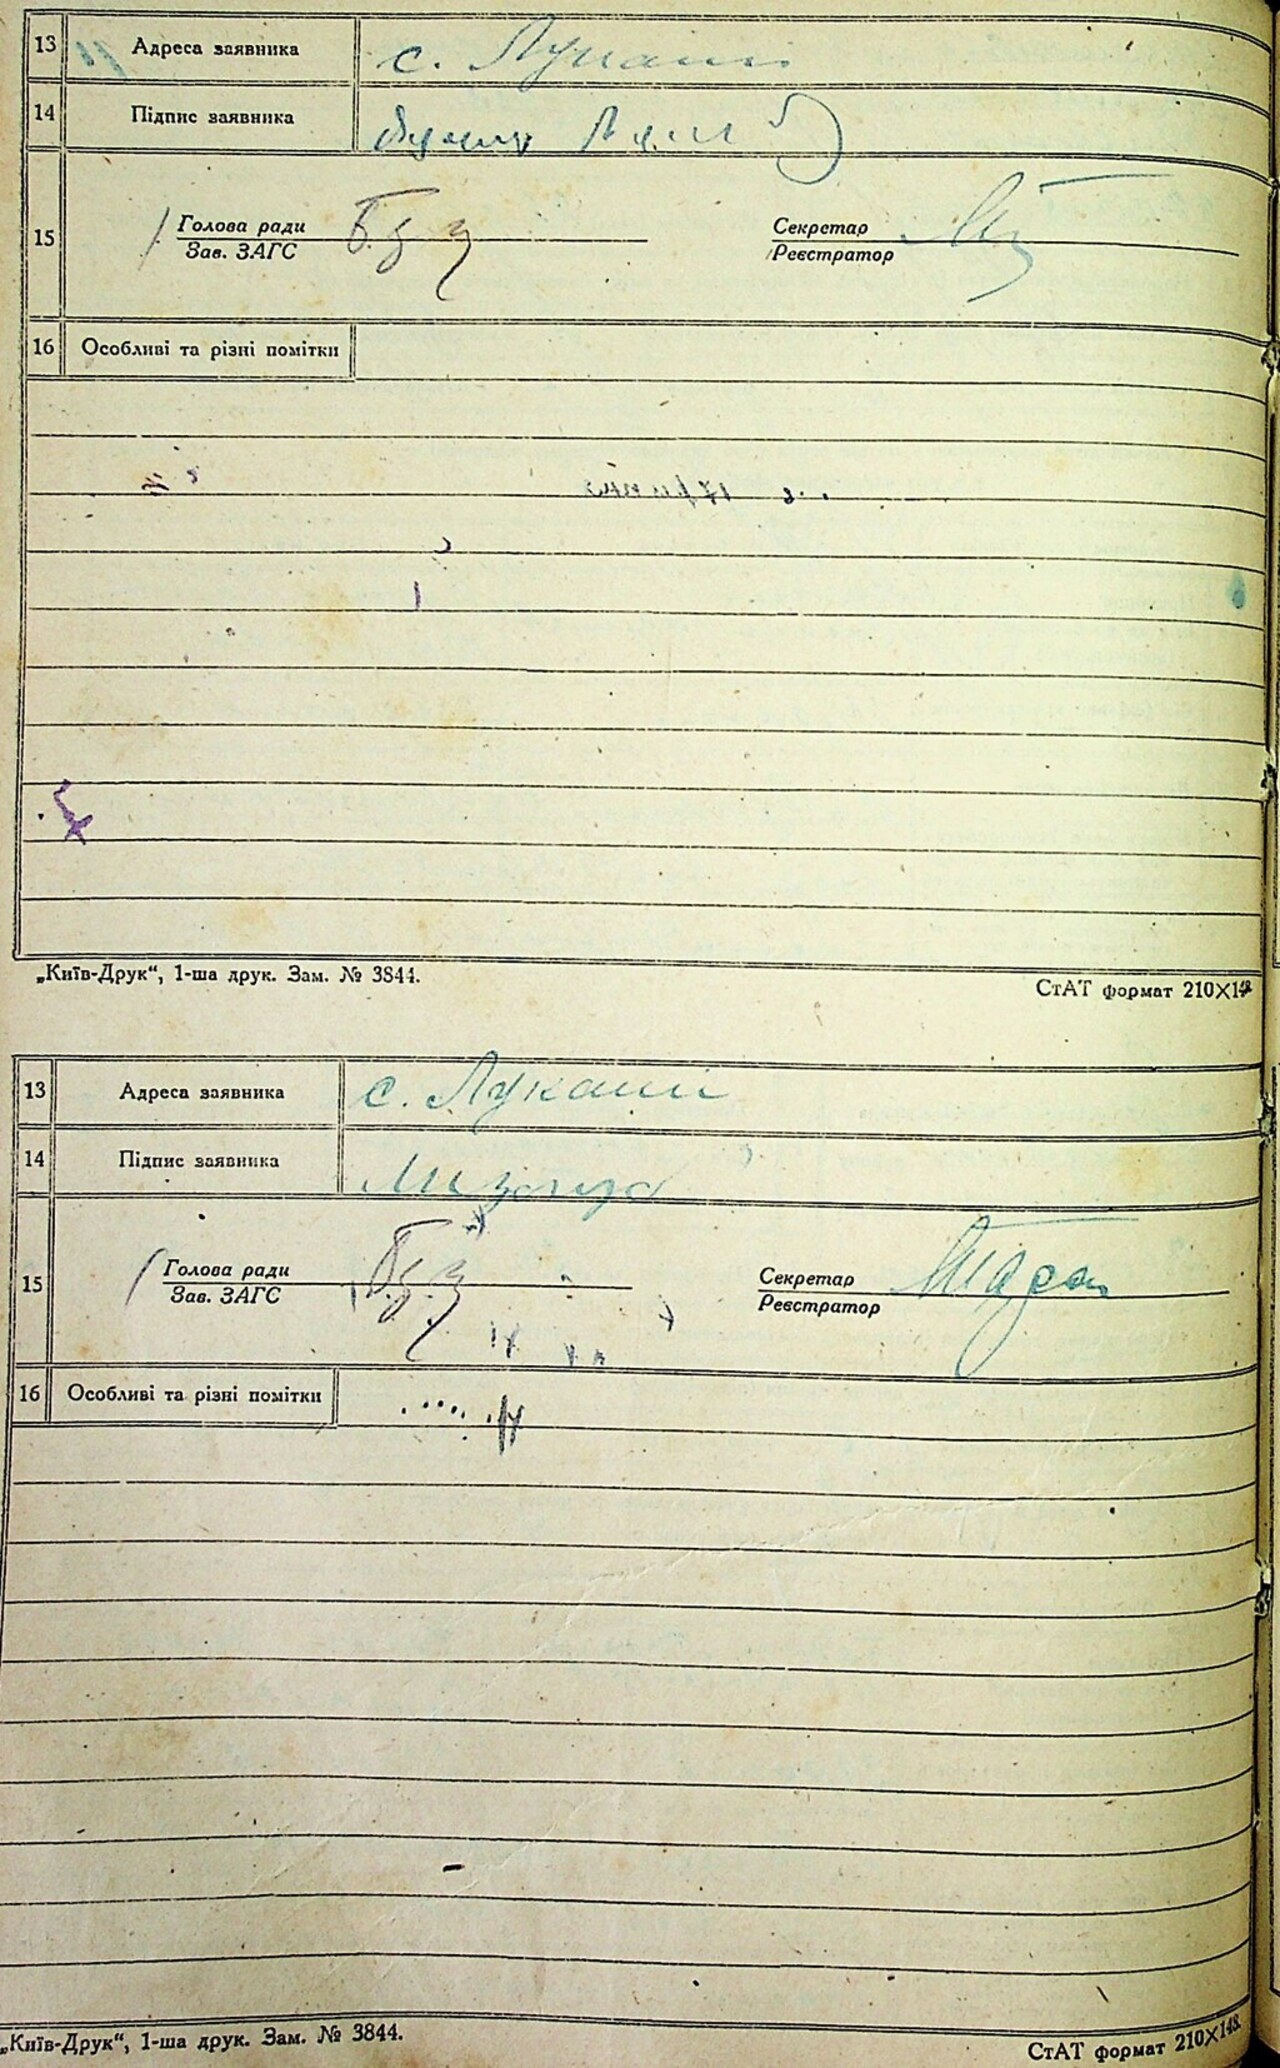 13 Адреса заявника с. Лукаші
14 Підпис заявника
15 Голова ради Секретар
Зав. ЗАГС Реєстратор
16 Особливі та різні помітки
„Київ-Друк“, 1-ша друк. Зам. № 3844. СтАТ формат 210×148
13 Адреса заявника с. Лукаші
14 Підпис заявника
15 Голова ради Секретар
Зав. ЗАГС Реєстратор
16 Особливі та різні помітки
„Київ-Друк“, 1-ша друк. Зам. № 3844. СтАТ формат 210×148.